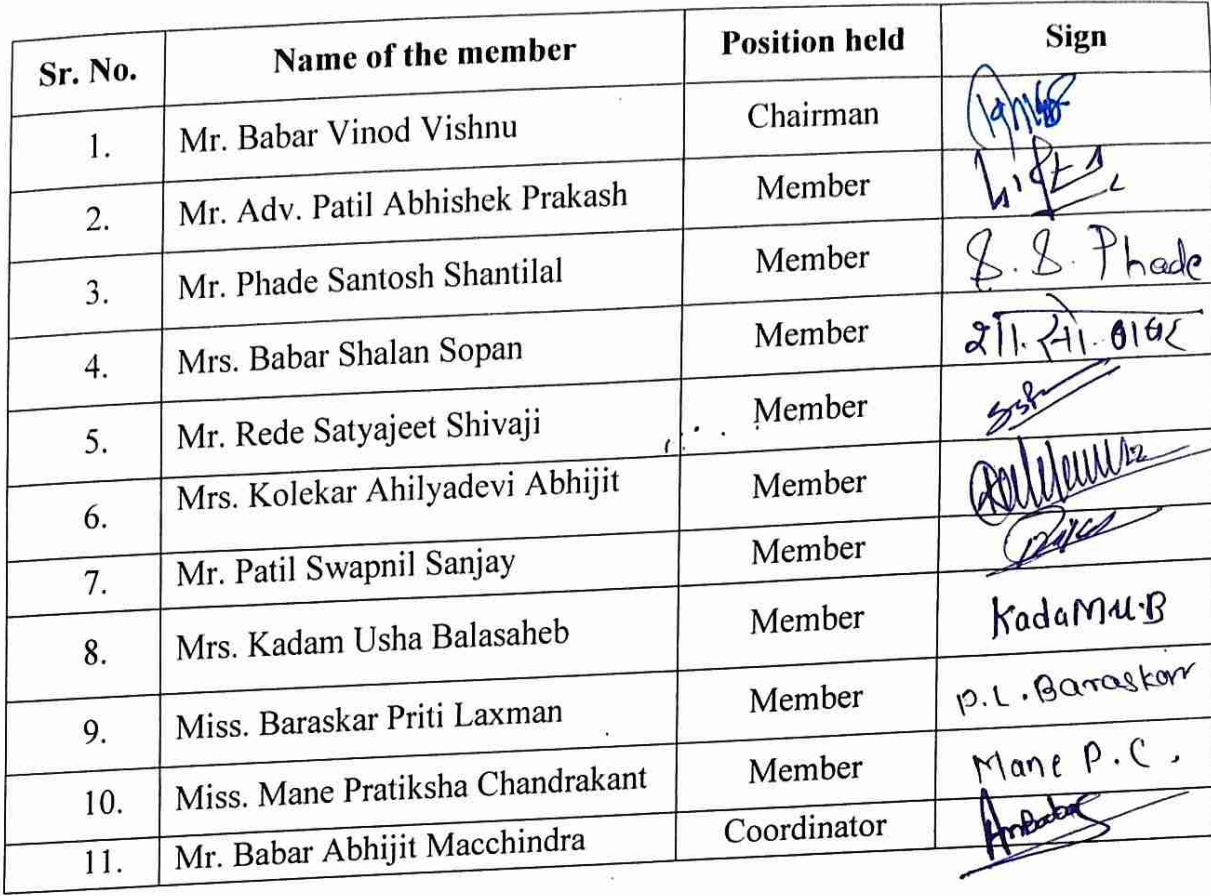 Sr. No. Name of the member Position held Sign
1. Mr. Babar Vinod Vishnu Chairman
2. Mr. Adv. Patil Abhishek Prakash Member
3. Mr. Phade Santosh Shantilal Member S. S. Phade
4. Mrs. Babar Shalan Sopan Member शा. सो. बाबर
5. Mr. Rede Satyajeet Shivaji Member
6. Mrs. Kolekar Ahilyadevi Abhijit Member
7. Mr. Patil Swapnil Sanjay Member
8. Mrs. Kadam Usha Balasaheb Member Kadam U.B
9. Miss. Baraskar Priti Laxman Member P.L. Baraskar
10. Miss. Mane Pratiksha Chandrakant Member Mane P.C.
11. Mr. Babar Abhijit Macchindra Coordinator AmBabar